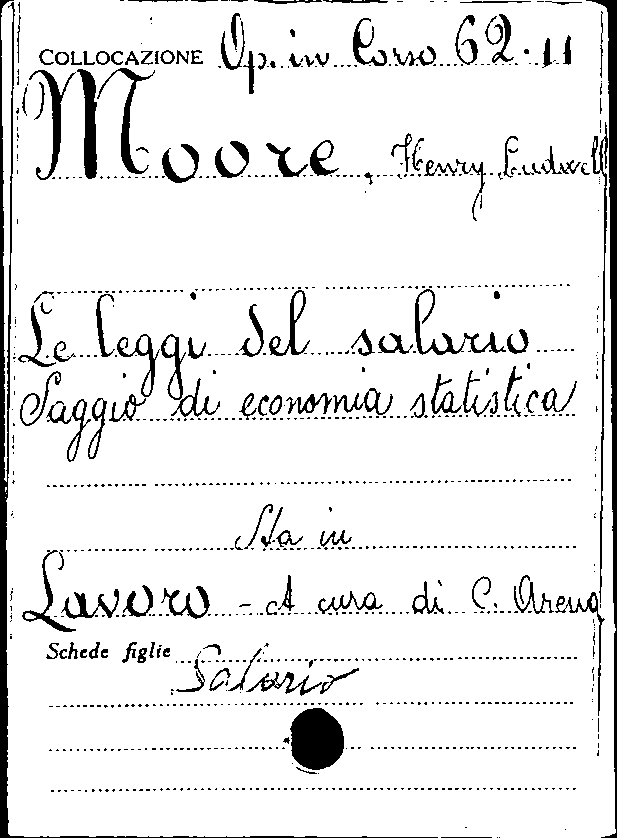 COLLOCAZIONE Op. in Corso 62.11
Moore, Henry Ludwell
Le leggi del salario
Saggio di economia statistica
Sta in
Lavoro - A cura di C. Arena
Schede figlie Salario